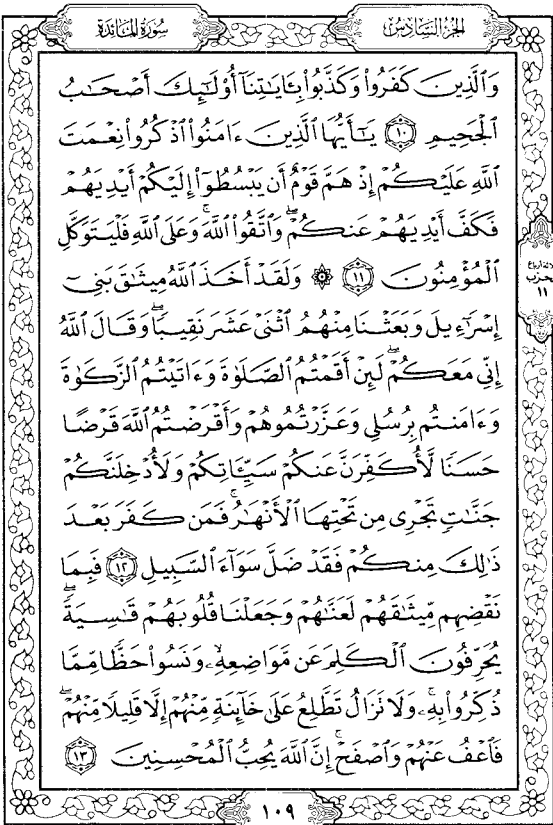 الجزء السادس
سورة المائدة
وَٱلَّذِينَ كَفَرُواْ وَكَذَّبُواْ بِـَٔايَٰتِنَآ أُوْلَٰٓئِكَ أَصْحَٰبُ
ٱلْجَحِيمِ ١٠ يَٰٓأَيُّهَا ٱلَّذِينَ ءَامَنُواْ ٱذْكُرُواْ نِعْمَتَ
ٱللَّهِ عَلَيْكُمْ إِذْ هَمَّ قَوْمٌ أَن يَبْسُطُوٓاْ إِلَيْكُمْ أَيْدِيَهُمْ
فَكَفَّ أَيْدِيَهُمْ عَنكُمْ ۖ وَٱتَّقُواْ ٱللَّهَ ۚ وَعَلَى ٱللَّهِ فَلْيَتَوَكَّلِ
ٱلْمُؤْمِنُونَ ١١ ۞ وَلَقَدْ أَخَذَ ٱللَّهُ مِيثَٰقَ بَنِىٓ
إِسْرَٰٓءِيلَ وَبَعَثْنَا مِنْهُمُ ٱثْنَىْ عَشَرَ نَقِيبًا ۖ وَقَالَ ٱللَّهُ
إِنِّى مَعَكُمْ ۖ لَئِنْ أَقَمْتُمُ ٱلصَّلَوٰةَ وَءَاتَيْتُمُ ٱلزَّكَوٰةَ
وَءَامَنتُم بِرُسُلِى وَعَزَّرْتُمُوهُمْ وَأَقْرَضْتُمُ ٱللَّهَ قَرْضًا
حَسَنًا لَّأُكَفِّرَنَّ عَنكُمْ سَيِّـَٔاتِكُمْ وَلَأُدْخِلَنَّكُمْ
جَنَّٰتٍ تَجْرِى مِن تَحْتِهَا ٱلْأَنْهَٰرُ ۚ فَمَن كَفَرَ بَعْدَ
ذَٰلِكَ مِنكُمْ فَقَدْ ضَلَّ سَوَآءَ ٱلسَّبِيلِ ١٢ فَبِمَا
نَقْضِهِم مِّيثَٰقَهُمْ لَعَنَّٰهُمْ وَجَعَلْنَا قُلُوبَهُمْ قَٰسِيَةً ۖ
يُحَرِّفُونَ ٱلْكَلِمَ عَن مَّوَاضِعِهِۦ ۙ وَنَسُواْ حَظًّا مِّمَّا
ذُكِّرُواْ بِهِۦ ۚ وَلَا تَزَالُ تَطَّلِعُ عَلَىٰ خَآئِنَةٍ مِّنْهُمْ إِلَّا قَلِيلًا مِّنْهُمْ ۖ
فَٱعْفُ عَنْهُمْ وَٱصْفَحْ ۚ إِنَّ ٱللَّهَ يُحِبُّ ٱلْمُحْسِنِينَ ١٣
١١
١٠٩